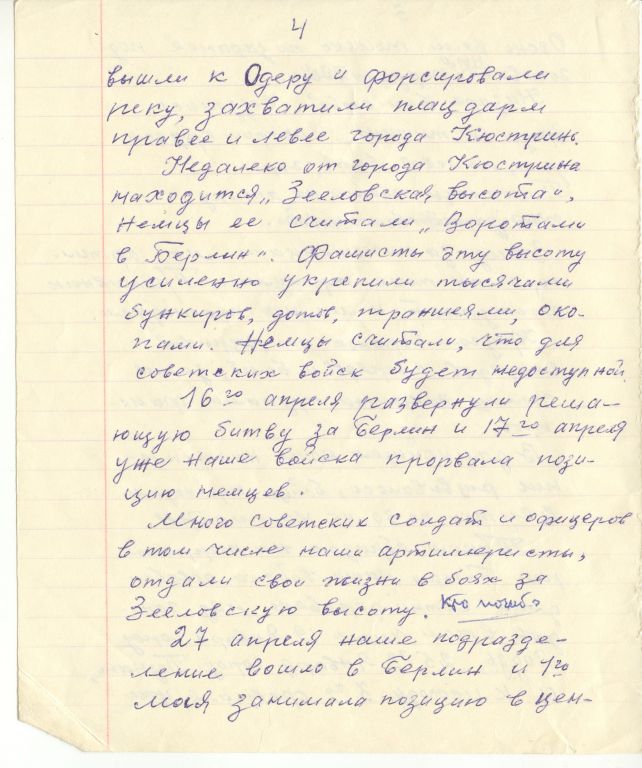 4
вышли к Одеру и форсировали
реку, захватили плацдарм
правее и левее города Кюстринь.
Недалеко от города Кюстрина
находится „Зееловская высота",
немцы ее считали „Воротами
в Берлин". Фашисты эту высоту
усиленно укрепили тысячами
бункиров, дотов, траншеями, око-
пами. Немцы считали, что для
советских войск будет недоступной.
16го апреля развернули реша-
ющую битву за Берлин и 17го апреля
уже наше войска прорвала пози-
цию немцев.
Много советских солдат и офицеров
в том числе наши артиллеристы,
отдали свои жизни в боях за
Зееловскую высоту. Кто погиб?
27 апреля наше подразде-
ление вошло в Берлин и 1го
мая занимала позицию в цен-